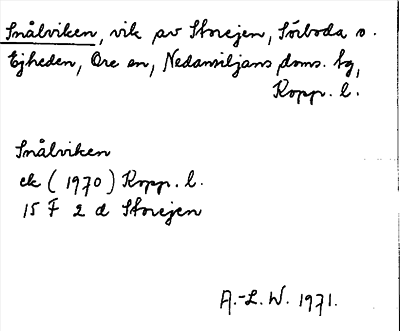 Snålviken, vik av Storejen, Sörboda o.
Ejheden, Ore sn, Nedansiljans doms. tg,
Kopp. l.
Snålviken
ek (1970) Kopp. l.
15 F 2 d Storejen
A.-L. W. 1971.